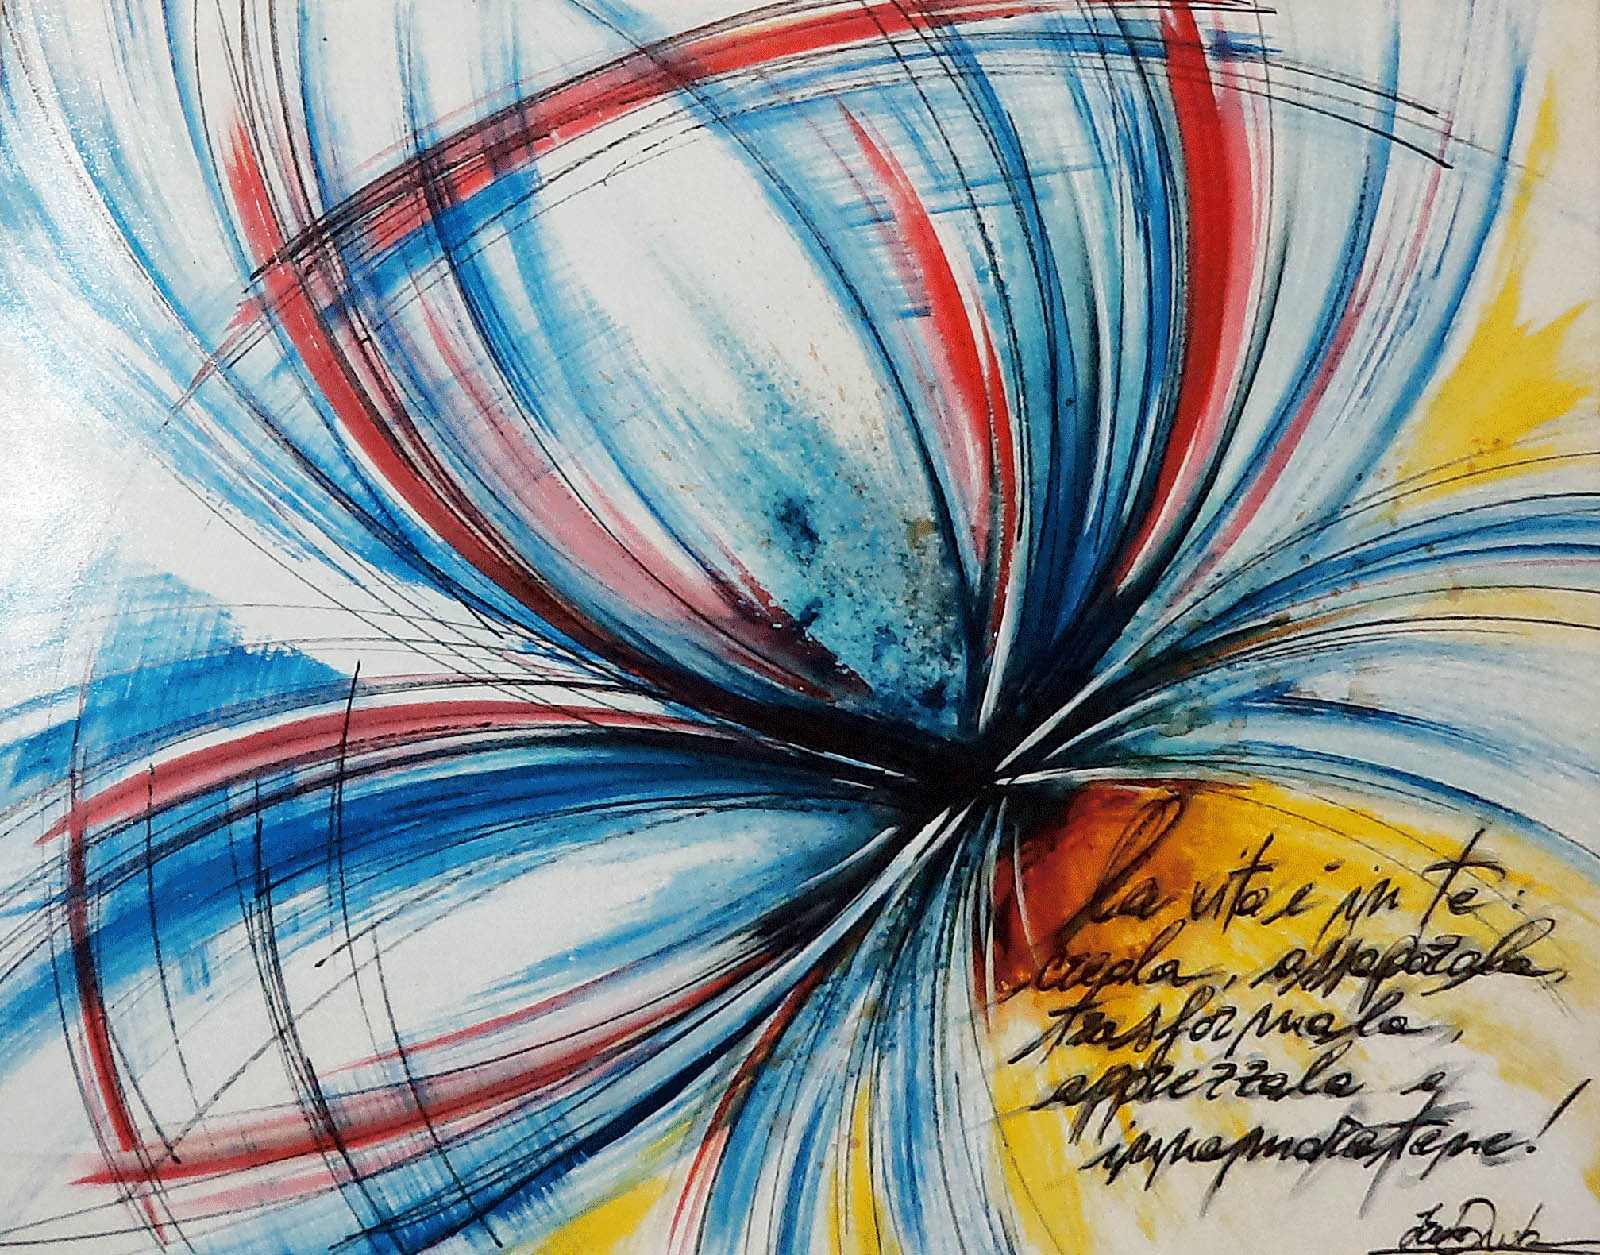 La vita è in te:
creala, assaporala,
trasformala,
apprezzala e
innamoratene!